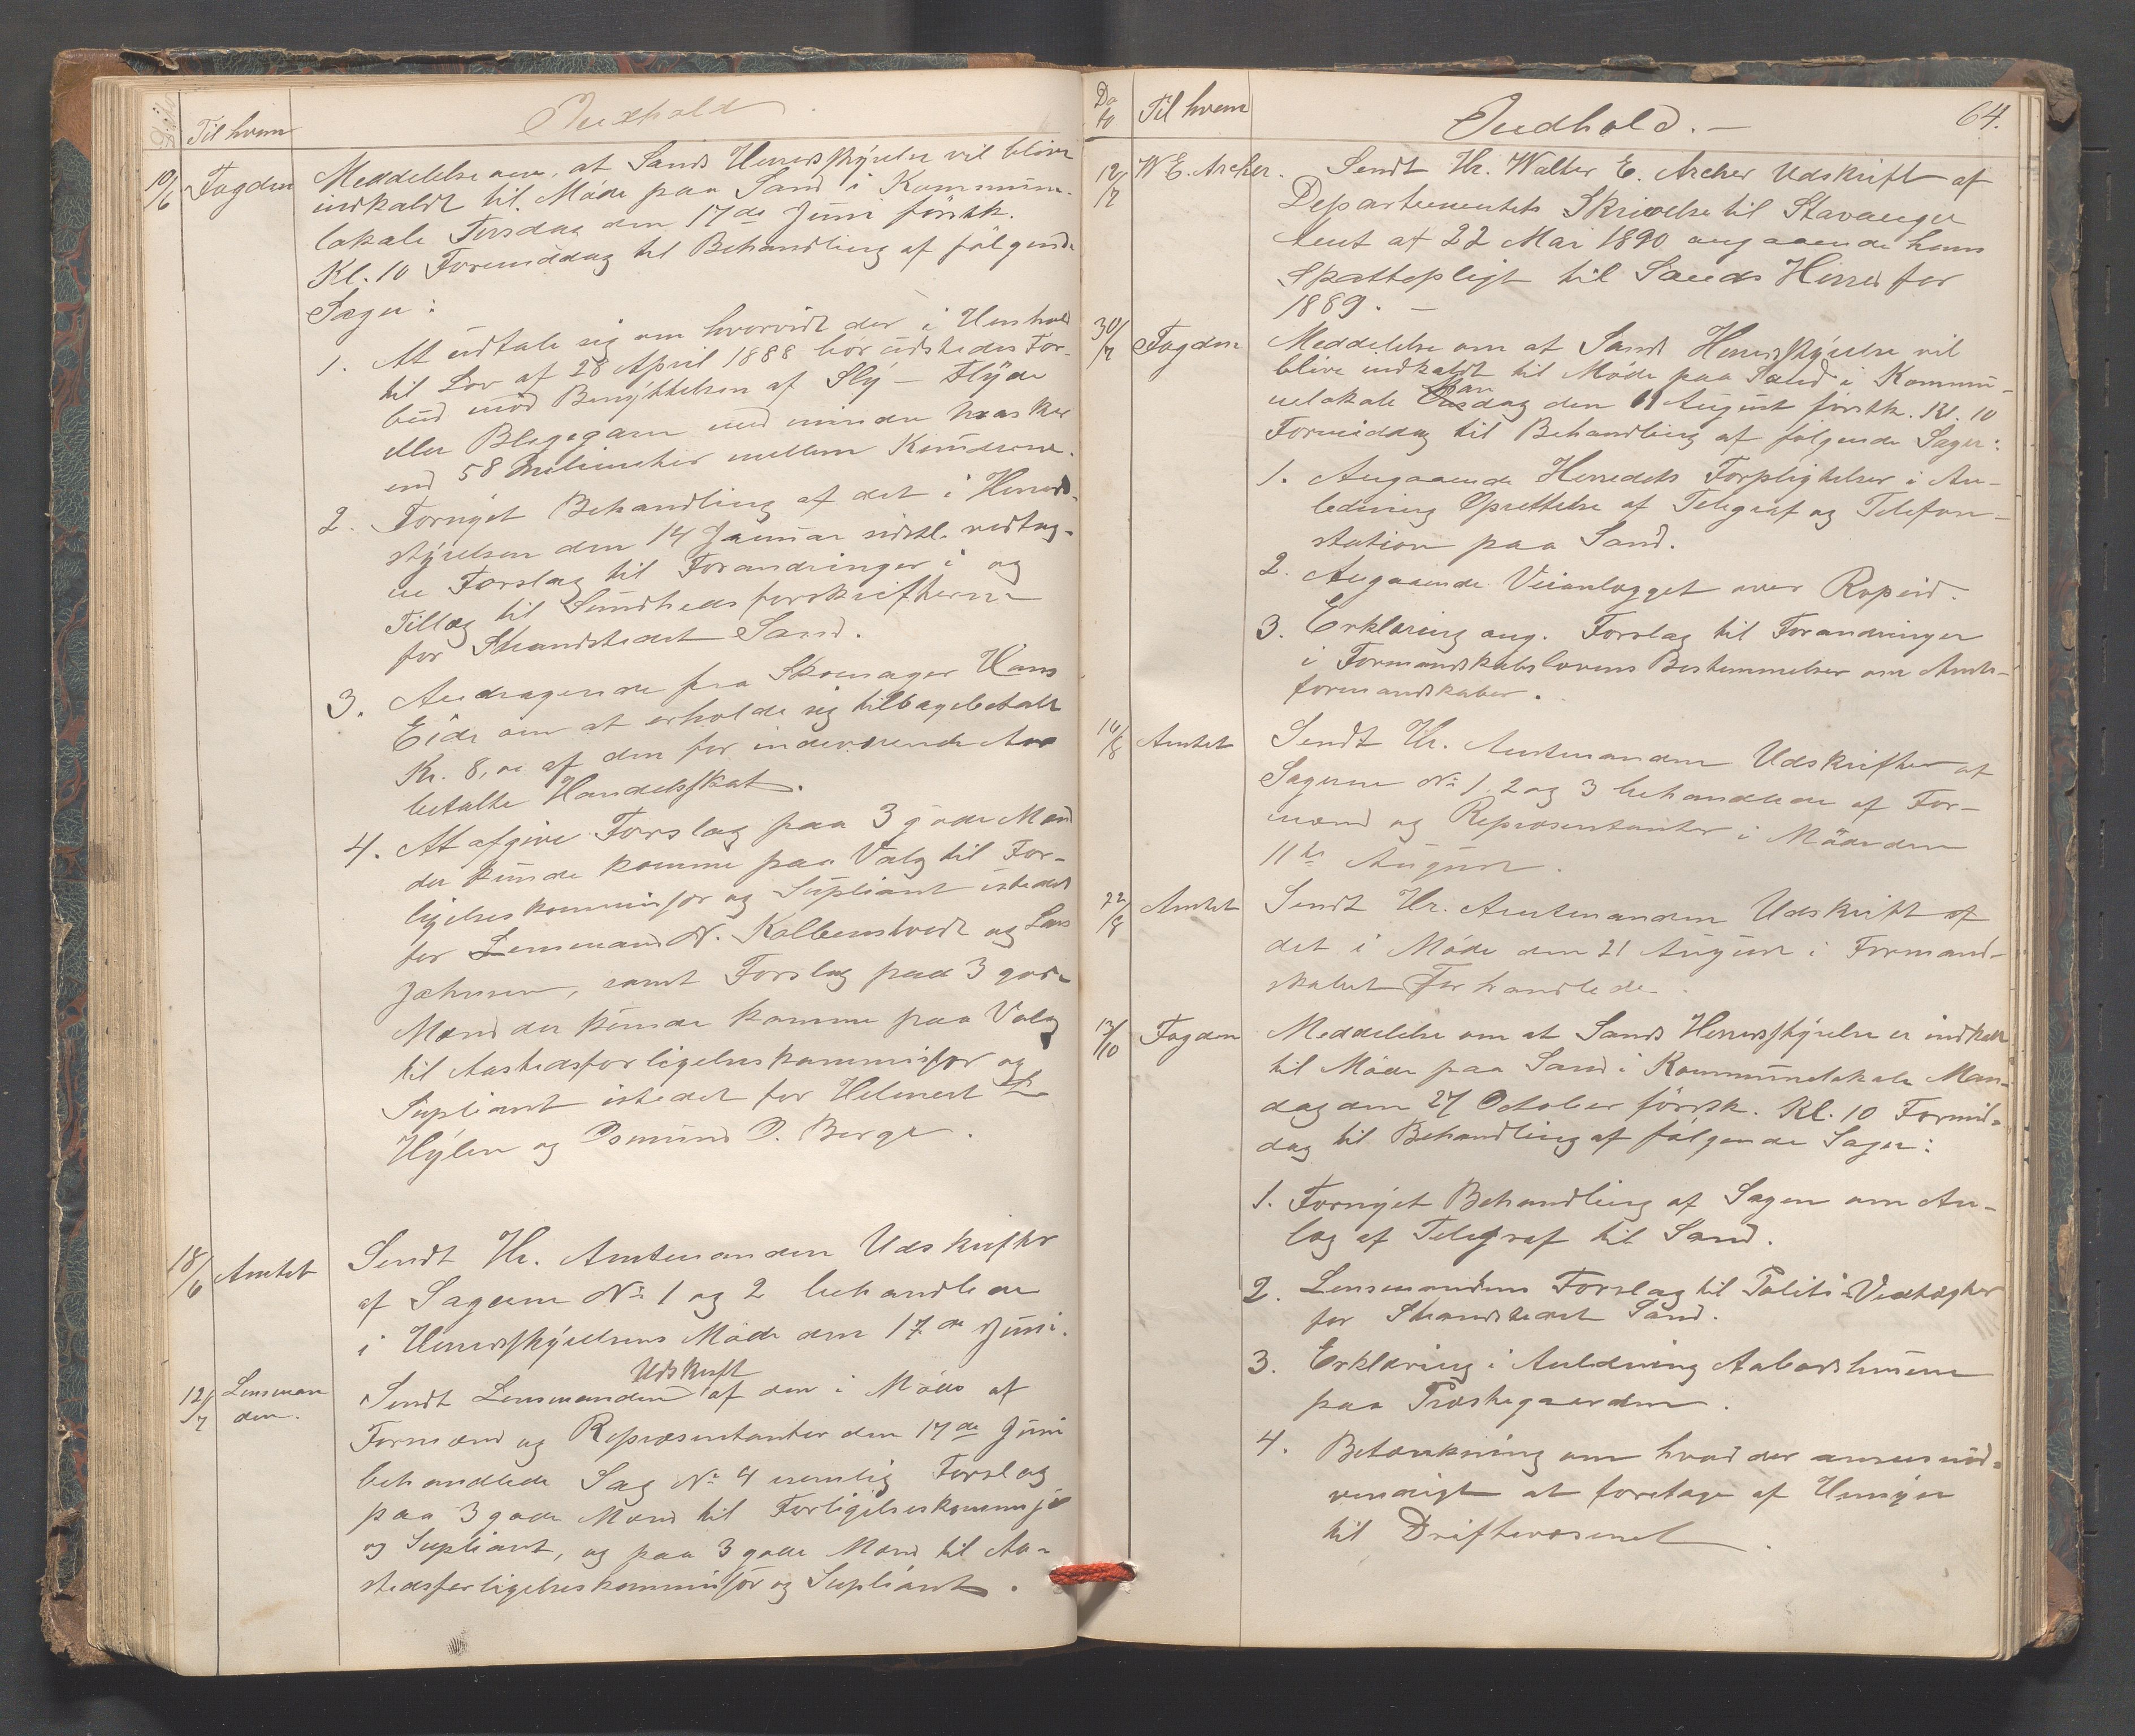 Dato
Til hvem
Indhold
10/6
Fogden
Meddelelse om, at Sands Herredsstyrelse vil blive
indkaldt til Møde paa Sand i Kommune-
lokale Tirsdag den 17de Juni førstk.
Kl. 10 Formiddag til Behandling af følgende
Sager:
1. At udtale sig om hvorvidt der i Henhold
til Lov af 28 April 1888 bør udstedes For-
bud mod Benyttelsen af Sly- Flyde
eller Blegegarn med mindre Masker
end 58 Milimeter mellem Knuderne.
2. Fornyet Behandling af det i Herreds-
styrelsen den 14 Januar sidstl. vedtag-
ne Forslag til Forandringer i og
Tillæg til Sundhedsforskrifterne
for Strandstedet Sand.
3. Andragende fra Skomager Hans
Eide om at erholde sig tilbagebetalt
Kr. 8,00 af den for indeværende Aar
betalte Handelsskat.
4. At afgive Forslag paa 3 gode Mænd
der kunde komme paa Valg til For-
ligelseskommissør og Supliant istedet
for Lensmand N. Kolbenstvedt og Lars
Johnsen, samt Forslag paa 3 gode
Mænd der kunde komme paa Valg
til Aastedsforligelseskommissør og
Supliant istedet for Helmert L.
Hylen og Osmund O. Berge.
18/6
Amtet
Sendt Hr. Amtmanden Udskrifter
af Sagerne No 1 og 2 behandlede
i Herredsstyrelsens Møde den 17de Juni.
12/7
Lensman
den.
Udskrift
Sendt Lensmanden af den i Møde af
Formænd og Repræsentanter den 17de Juni
behandlede Sag No 4 nemlig Forslag
paa 3 gode Mænd til Forligelseskommisjø
og Supliant, og paa 3 gode Mænd til Aa-
stedsforligelseskommissør og Supliant.
Da
to
Til hvem
Indhold.-
64.
12/7
W E. Archer.
Sendt Hr. Walter E. Archer Udskrift af
Departementets Skrivelse til Stavanger
Amt af 22 Mai 1890 angaaende hans
Skattepligt til Sands Herred for
1889.-
30/7
Fogden
Meddelelse om at Sands Herredsstyrelse vil
blive indkaldt til Møde paa Sand i Kommu-
man
nelokale Onsdag den 11 August førstk. Kl. 10
Formiddag til Behandling af følgende Sager:
1. Angaaende Herredets Forpligtelser i An-
ledning Oprettelse af Telegraf og Telefon-
station paa Sand.
2. Angaaende Veianlægget over Ropeid.
3. Erklæring ang. Forslag til Forandringer
i Formandskabslovens Bestemmelser om Amts-
formandskaber.
14/8
Amtet
Sendt Hr. Amtmanden Udskrifter af
Sagerne No 1, 2 og 3 behandlede af For-
mænd og Repræsentanter i Møde den
11te August.
22/8
Amtet
Sendt Hr. Amtmanden Udskrift af
det i Møde den 21 August i Formand-
skabet Forhandlede.
13/10
Fogden
Meddelelse om at Sands Herredsstyrelse er indkaldt
til Møde paa Sand i Kommunelokale Man-
dag den 27 October førstk. Kl. 10 Formid-
dag til Behandling af følgende Sager:
1. Fornyet Behandling af Sagen om An-
læg af Telegraf til Sand.
2. Lensmandens Forslag til Politi-Vedtægter
for Strandstedet Sand.
3. Erklæring i Anledning Aabodshusene
paa Præstegaarden.
4. Betænkning om hvad der ansees nød-
vendigt at foretage af Hensyn
til Driftevæsenet.